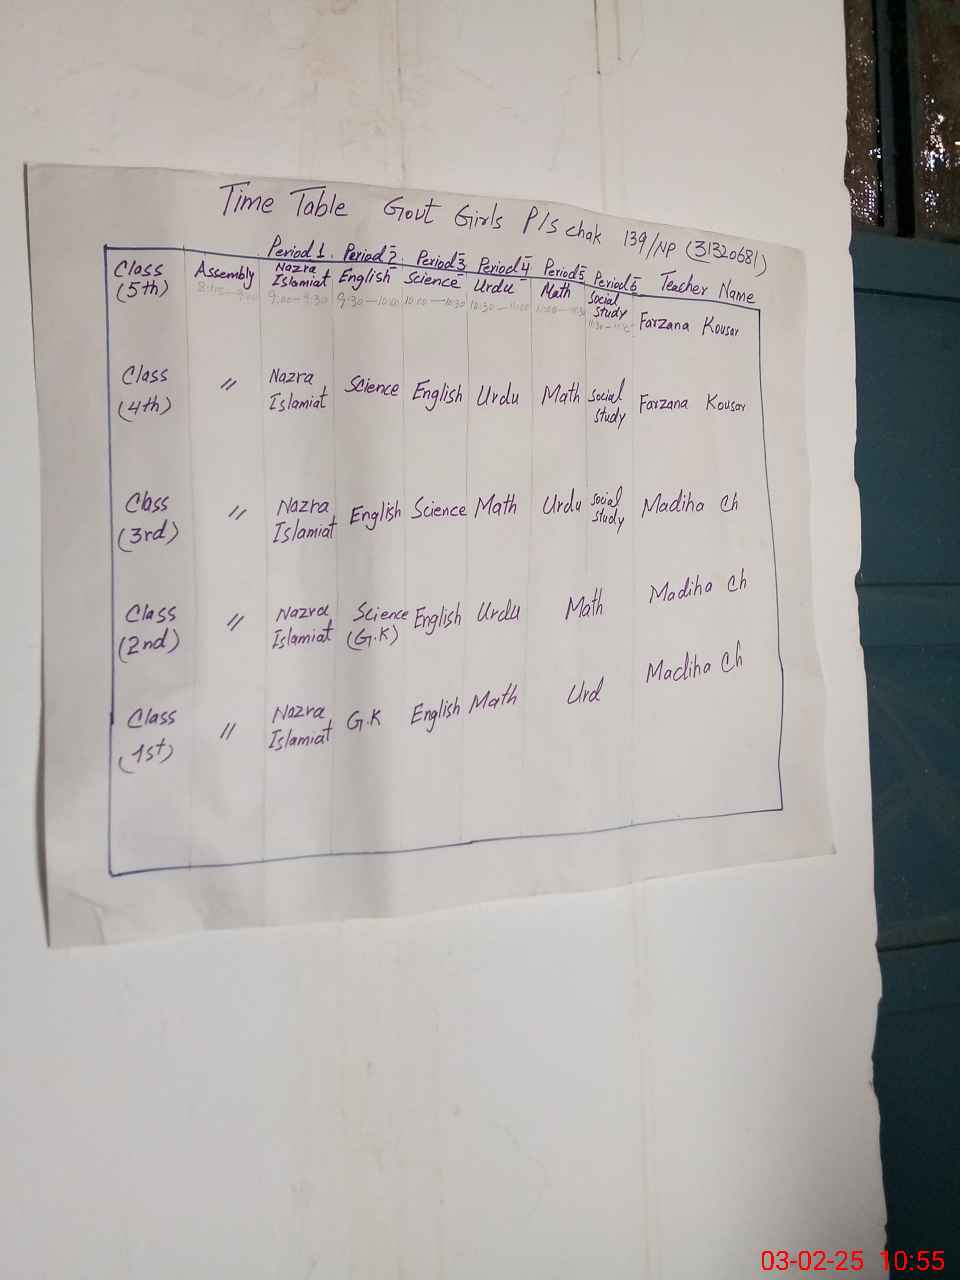 Time Table Govt Girls P/s chak 139/NP (31320681)
Period 1 Period 2 Period 3 Period 4 Period 5 Period 6 Teacher Name
Class (5th) Assembly Nazra Islamiat English Science Urdu Math Social Study Farzana Kousar
9:00-9:30 9:30-10:00 10:00-10:30 10:30-11:00
Class (4th) " Nazra Islamiat Science English Urdu Math Social Study Farzana Kousar
Class (3rd) " Nazra Islamiat English Science Math Urdu Social Study Madiha Ch
Class (2nd) " Nazra Islamiat Science (G.K) English Urdu Math Madiha Ch
Class (1st) " Nazra Islamiat G.K English Math Urd Madiha Ch
03-02-25 10:55